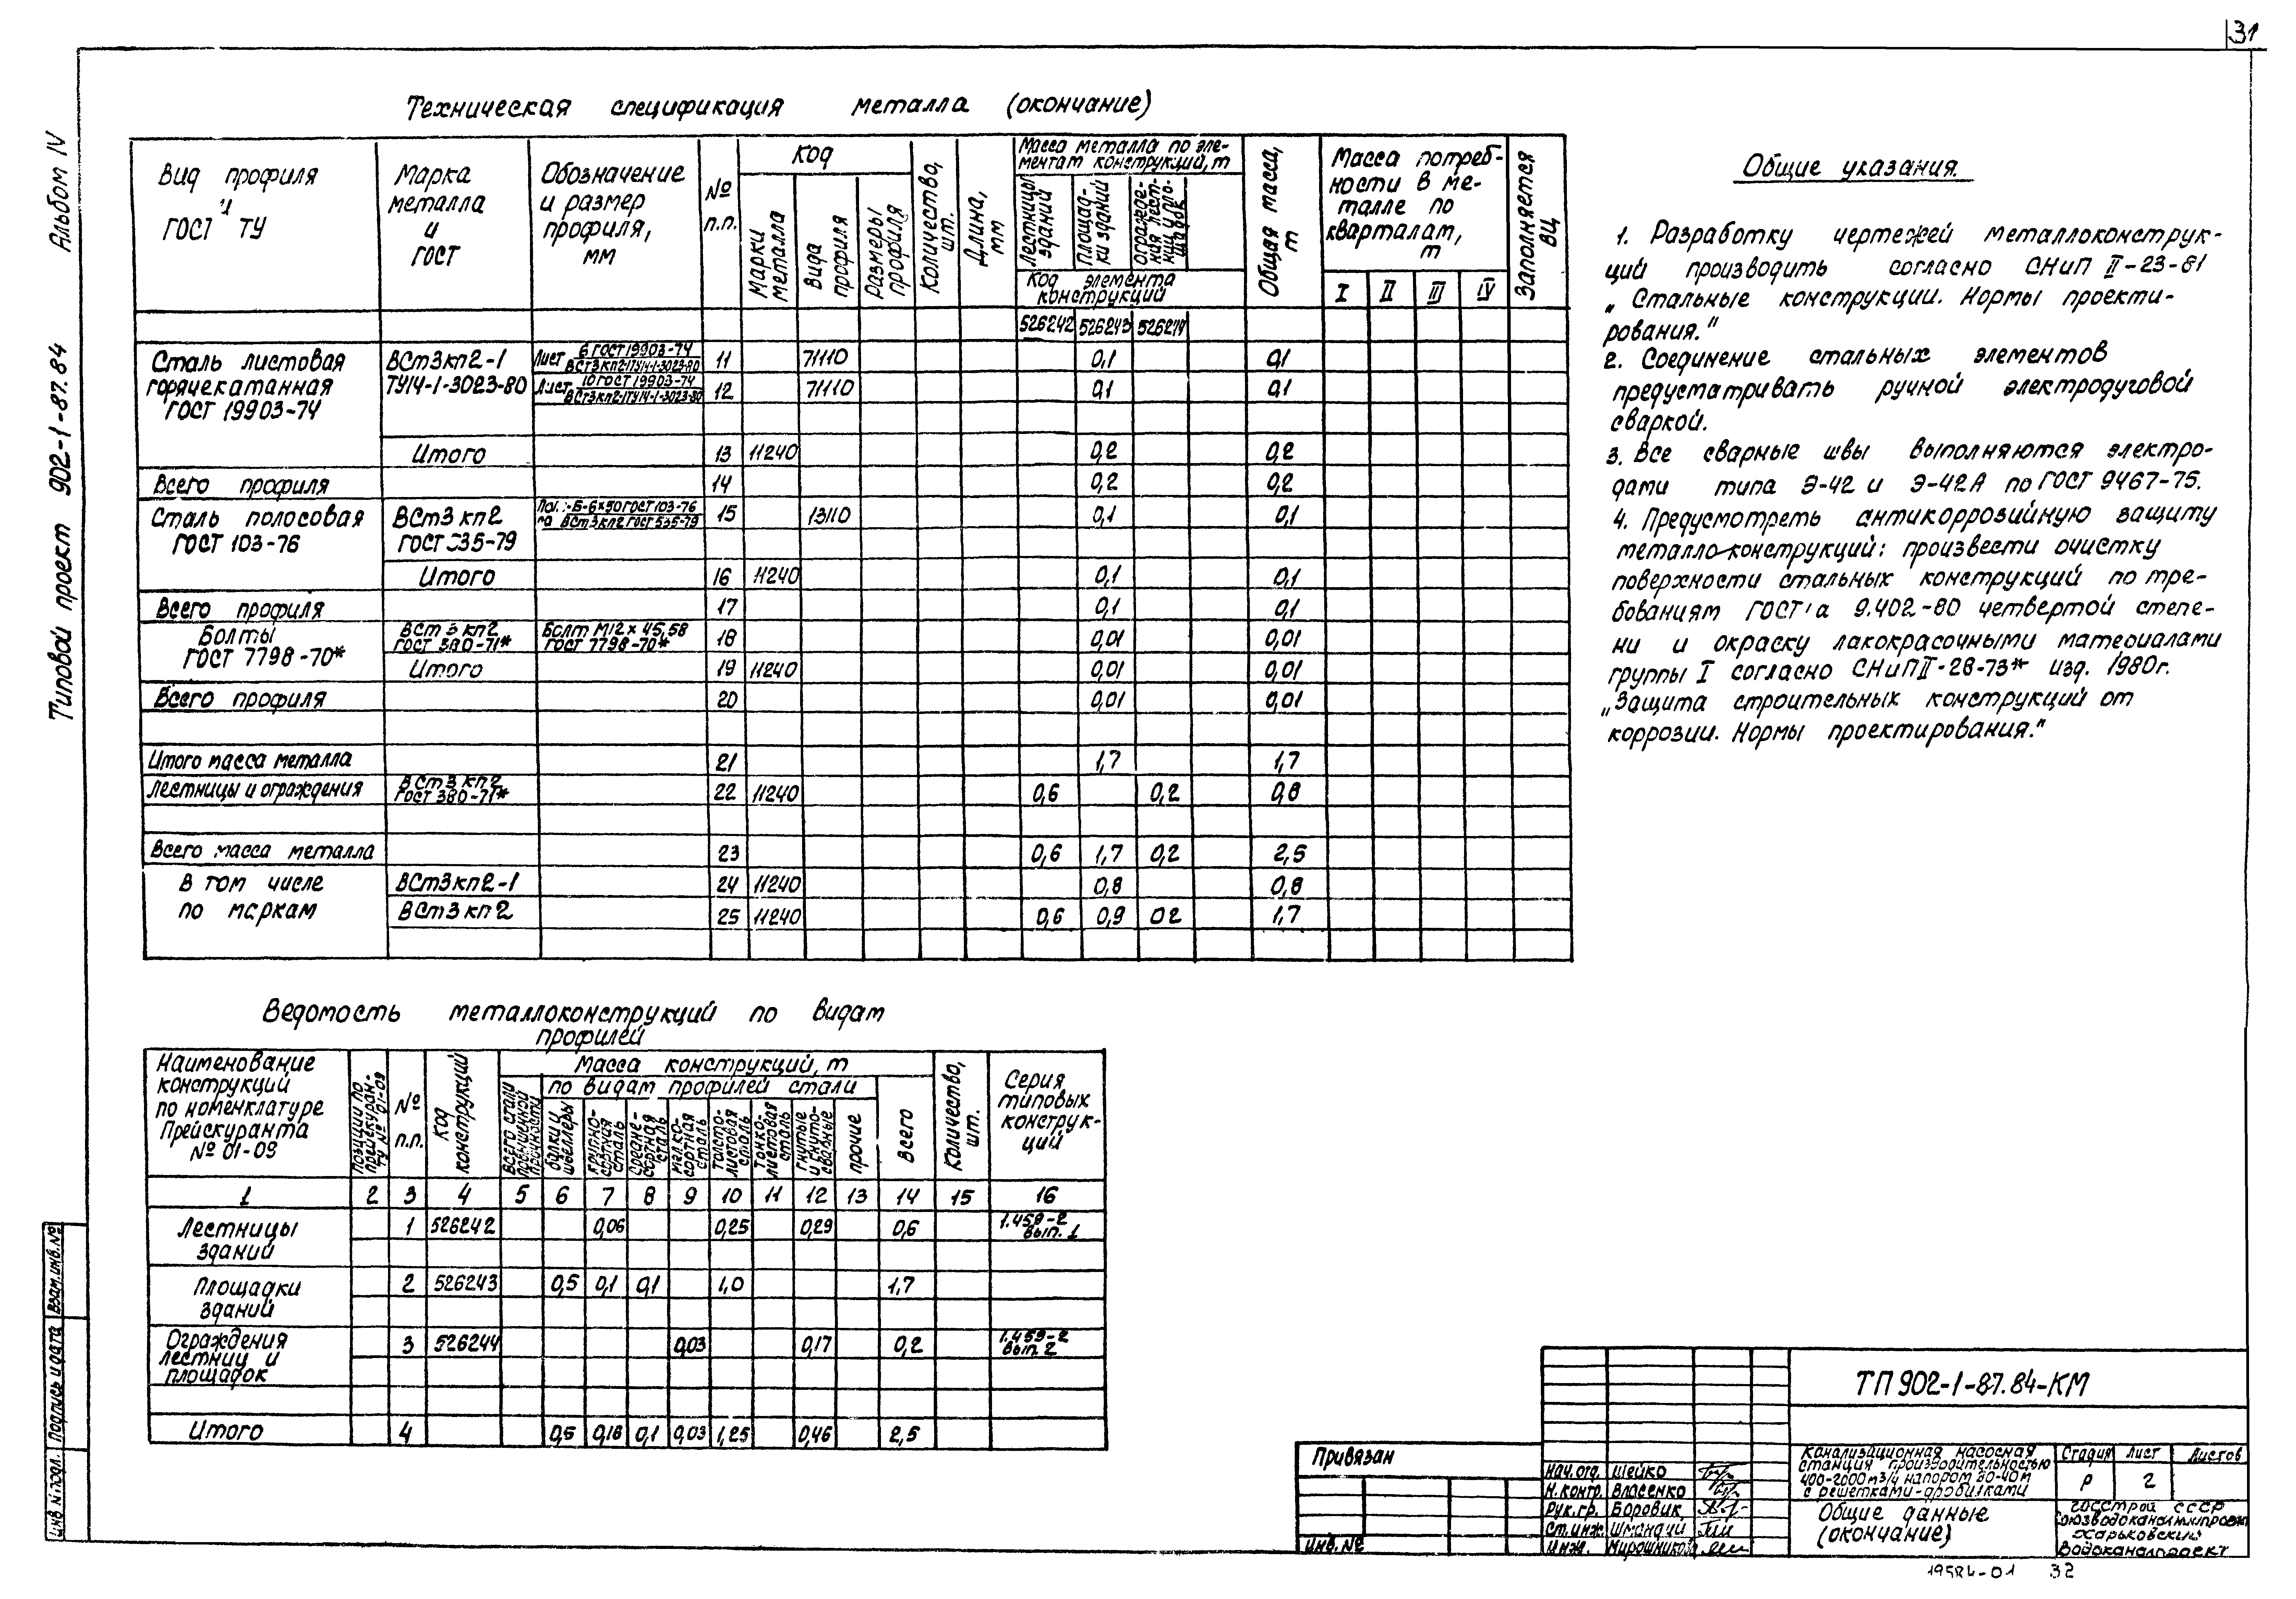 31
Альбом IV
Типовой проект 902-1-87.84
Техническая спецификация металла (окончание)
Вид профиля и ГОСТ ТУ
Марка металла и ГОСТ
Обозначение и размер профиля, мм
№ п.п.
Код
Марки металла
Вида профиля
Размеры профиля
Количество, шт.
Длина, мм
Масса металла по элементам конструкций, т
Лестницы зданий
Площадки зданий
Ограждения лестниц и площадок
Код элемента конструкций
Общая масса, т
Масса потребности в металле по кварталам, т
I II III IV
Заполняется ВЦ
526242 526243 526244
Сталь листовая горячекатанная ГОСТ 19903-74
ВСт3кп2-1 ТУ14-1-3023-80
Лист 6 ГОСТ 19903-74 ВСт3кп2-1ТУ14-1-3023-80 11 71110 0,1 0,1
Лист 10 ГОСТ 19903-74 ВСт3кп2-1ТУ14-1-3023-80 12 71110 0,1 0,1
Итого 13 11240 0,2 0,2
Всего профиля 14 0,2 0,2
Сталь полосовая ГОСТ 103-76
ВСт3 кп2 ГОСТ 535-79
Б-6×50 ГОСТ 103-76 ВСт3кп2 ГОСТ 535-79 15 13110 0,1 0,1
Итого 16 11240 0,1 0,1
Всего профиля 17 0,1 0,1
Болты ГОСТ 7798-70*
ВСт3 кп2 ГОСТ 380-71*
Болт М12×45,58 ГОСТ 7798-70* 18 0,01 0,01
Итого 19 11240 0,01 0,01
Всего профиля 20 0,01 0,01
Итого масса металла 21 1,7 1,7
Лестницы и ограждения ВСт3 кп2 ГОСТ 380-71* 22 11240 0,6 0,2 0,8
Всего масса металла 23 0,6 1,7 0,2 2,5
В том числе по маркам
ВСт3кп2-1 24 11240 0,8 0,8
ВСт3 кп2 25 11240 0,6 0,9 02 1,7
Общие указания.
1. Разработку чертежей металлоконструк-
ций производить согласно СНиП II-23-81
„Стальные конструкции. Нормы проекти-
рования."
2. Соединение стальных элементов
предусматривать ручной электродуговой
сваркой.
3. Все сварные швы выполняются электро-
дами типа Э-42 и Э-42А по ГОСТ 9467-75.
4. Предусмотреть антикоррозийную защиту
металло-конструкций: произвести очистку
поверхности стальных конструкций по тре-
бованиям ГОСТ'а 9.402-80 четвертой степе-
ни и окраску лакокрасочными материалами
группы I согласно СНиП II-28-73* изд. 1980г.
„Защита строительных конструкций от
коррозии. Нормы проектирования."
Ведомость металлоконструкций по видам
профилей
Наименование конструкций по номенклатуре Прейскуранта № 01-09
Позиции по прейскуранту № 01-09
№ п.п.
Код конструкций
Масса конструкций, т
Всего стали повышенной прочности
по видам профилей стали
Балки и швеллеры
Крупносортная сталь
Среднесортная сталь
Мелкосортная сталь
Толстолистовая сталь
Тонколистовая сталь
Гнутые и гнутосварные
Прочие
Всего
Количество, шт.
Серия типовых конструкций
1 2 3 4 5 6 7 8 9 10 11 12 13 14 15 16
Лестницы зданий 1 526242 0,06 0,25 0,29 0,6 1.459-2 вып. 1
Площадки зданий 2 526243 0,5 0,1 0,1 1,0 1,7
Ограждения лестниц и площадок 3 526244 0,03 0,17 0,2 1.459-2 вып 2
Итого 4 0,5 0,16 0,1 0,03 1,25 0,46 2,5
Инв. № подл. Подпись и дата Взам. инв. №
Привязан
Инв. №
Нач. отд. Шейко
Н. контр. Власенко
Рук. гр. Боровик
Ст. инж. Шмандий
Инж. Мирошникова
ТП 902-1-87.84-КМ
Канализационная насосная
станция производительностью
400-2000 м3/ч напором 80-40м
с решетками-дробилками
Стадия Лист Листов
Р 2
Общие данные
(окончание)
Госстрой СССР
Союзводоканалниипроект
Харьковский
Водоканалпроект
19584-01 32